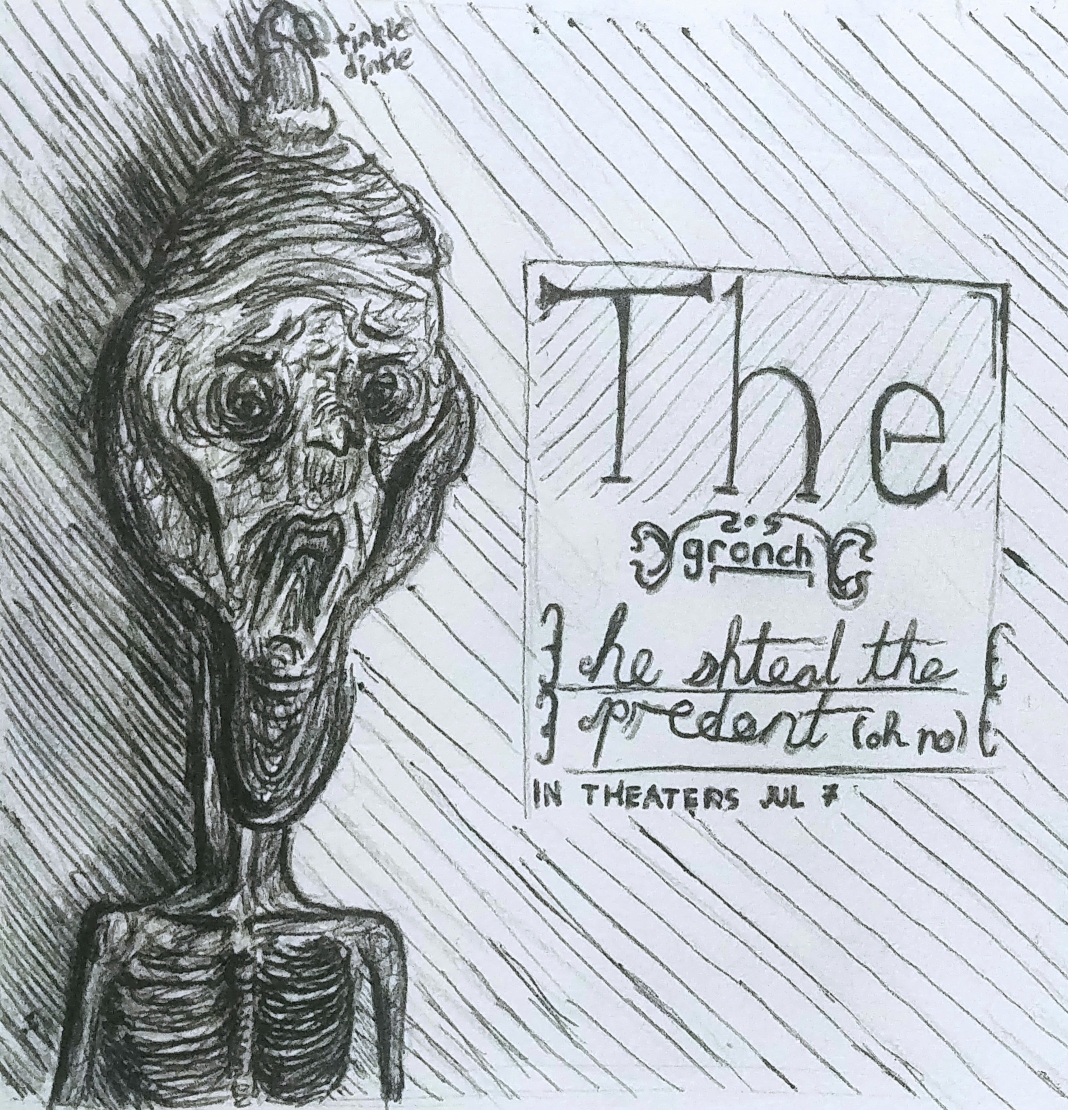 rinkle
dinkle
The
2.5
gronch
he shteal the
predent (oh no)
IN THEATERS JUL 7